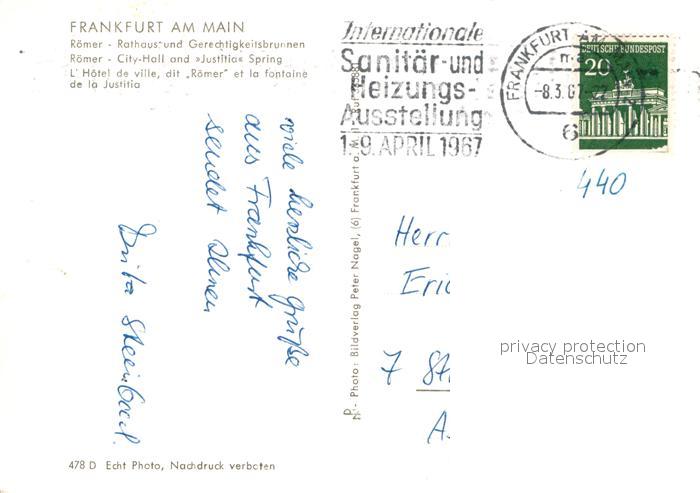 FRANKFURT AM MAIN
Römer - Rathaus und Gerechtigkeitsbrunnen
Römer - City-Hall and »Justitia« Spring
L' Hôtel de ville, dit „Römer" et la fontaine
de la Justitia
Internationale
Sanitär- und
Heizungs-
Ausstellung
1.-9. APRIL 1967
FRANKFURT AM
-8.3.67-
6
DEUTSCHE BUNDESPOST
20
440
viele herzliche Grüße
aus Frankfurt
sendet Ihnen
Anita
Photo: Bildverlag Peter Nagel, (6) Frankfurt a. M.
Herr
Eric
7 St
A.
privacy protection
Datenschutz
478 D Echt Photo, Nachdruck verboten